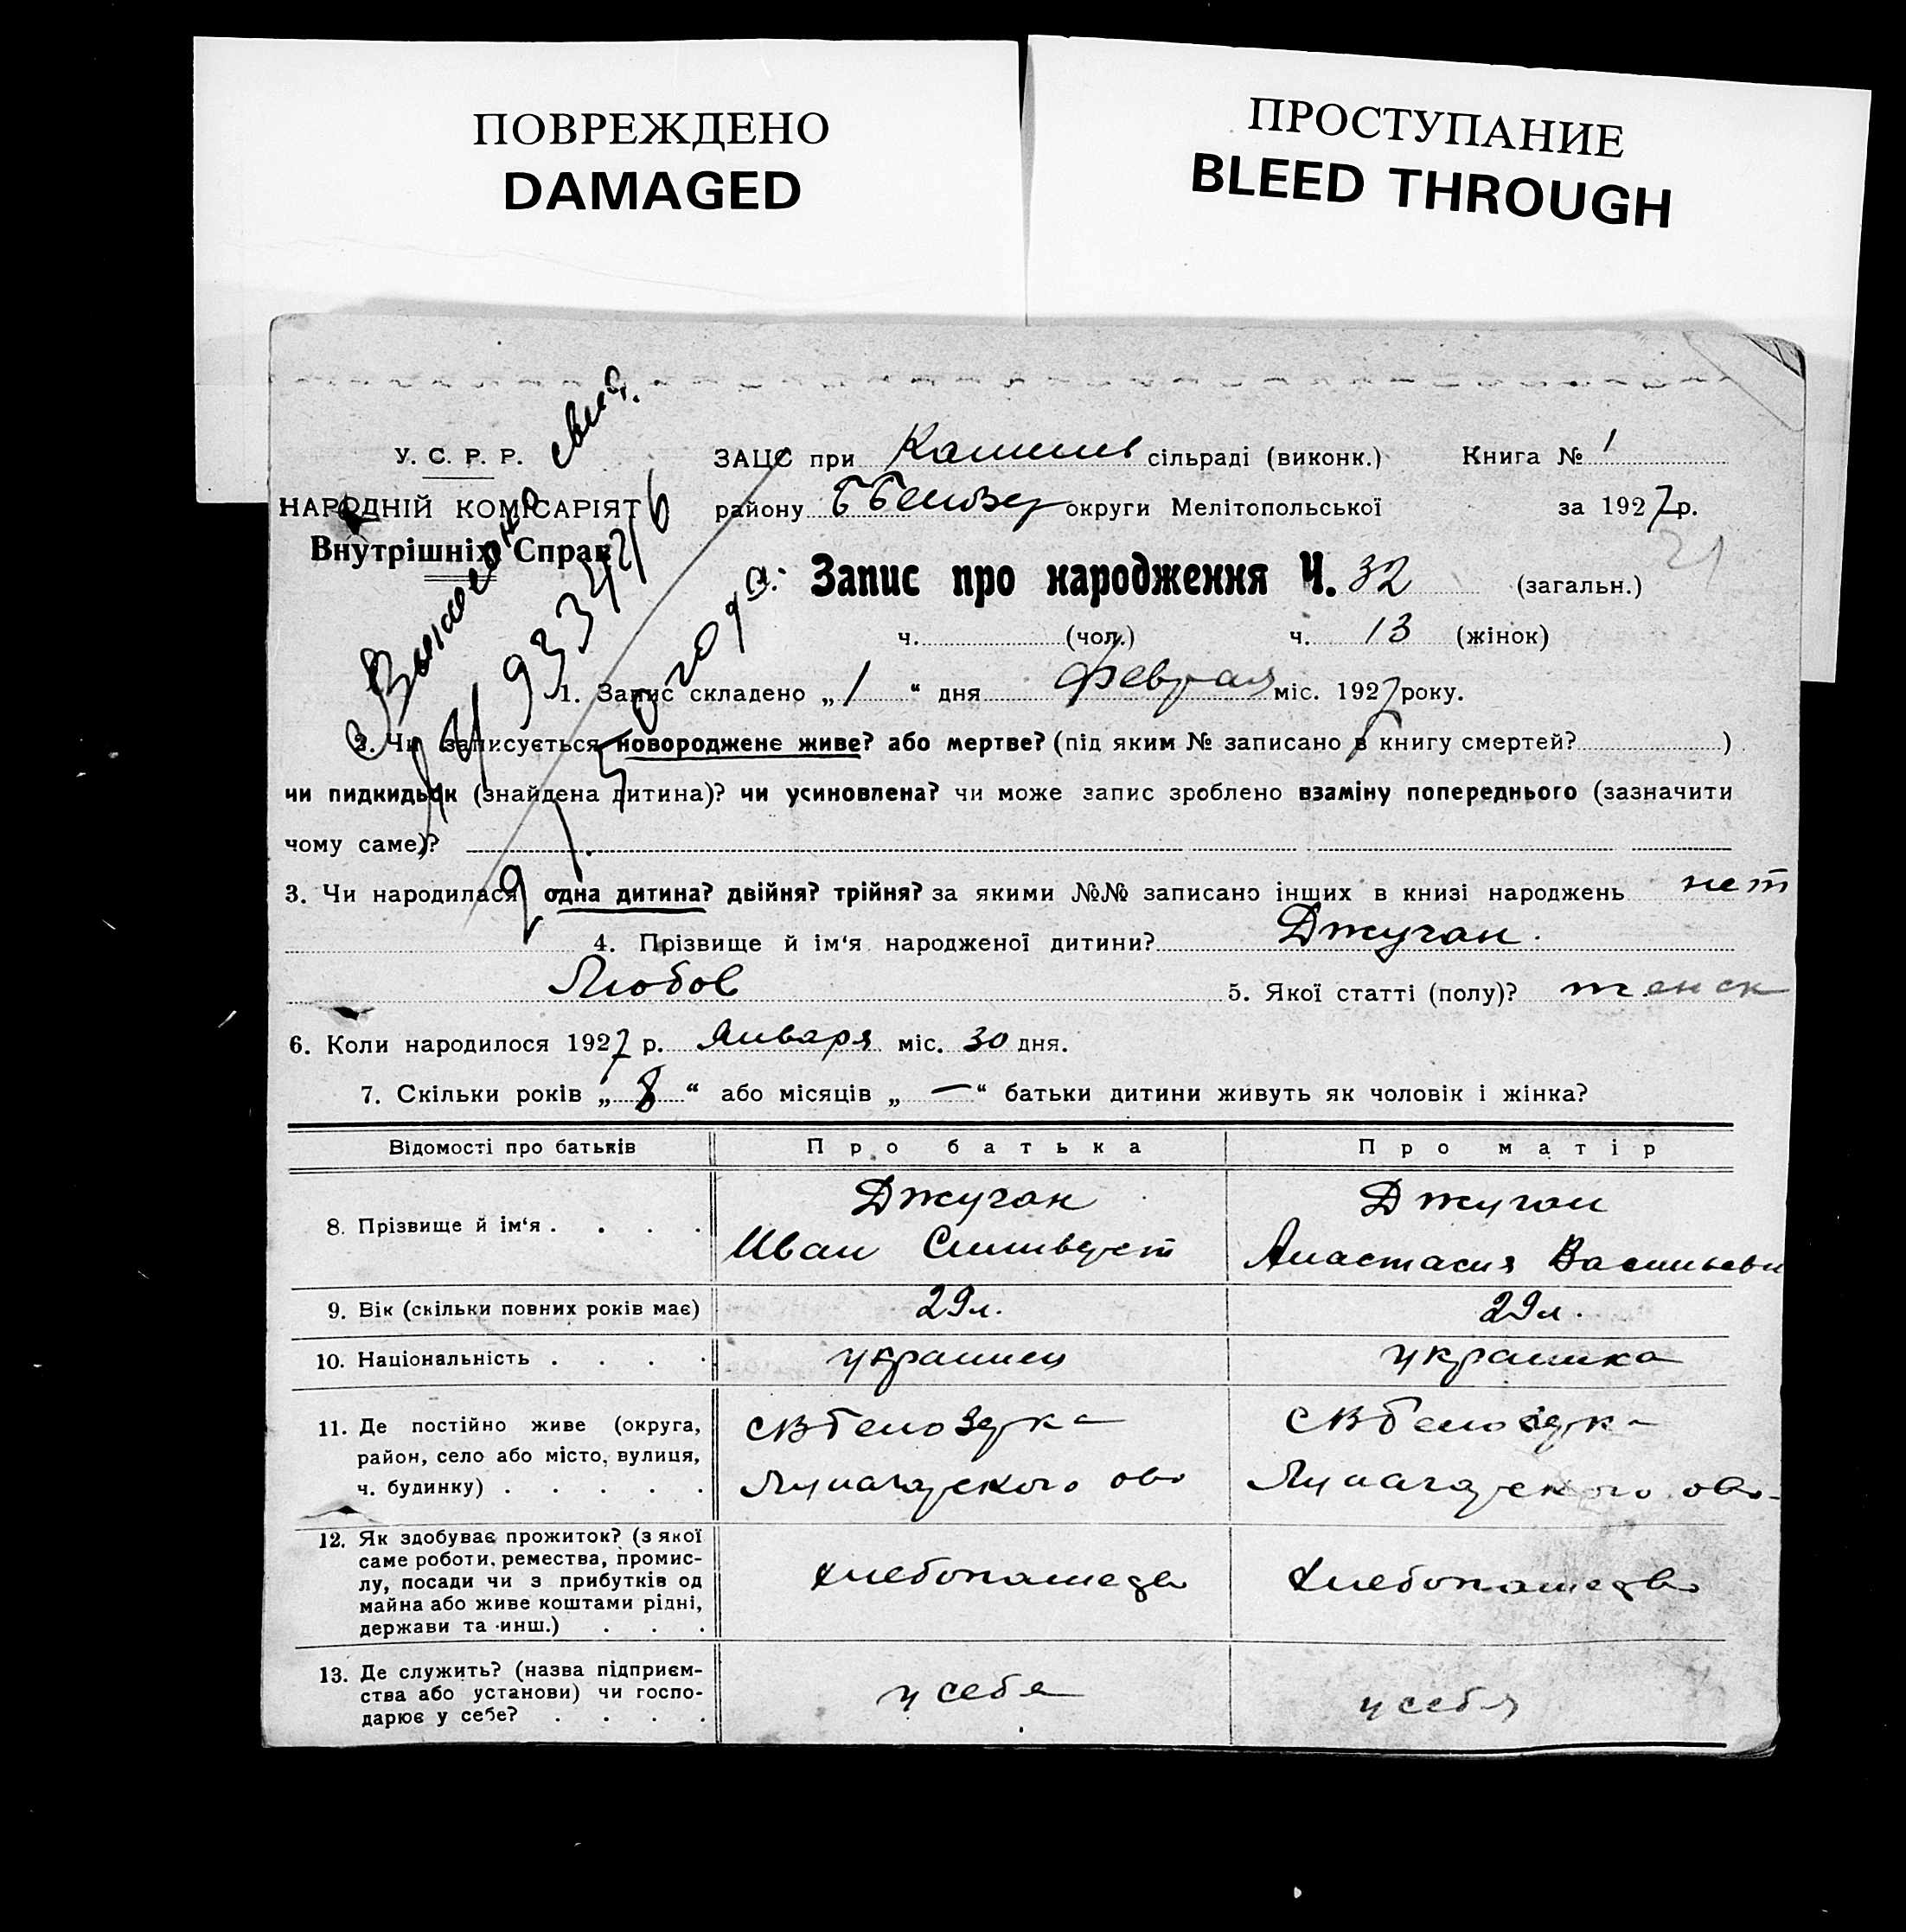 ПОВРЕЖДЕНО
DAMAGED
ПРОСТУПАНИЕ
BLEED THROUGH
У. С. Р. Р.
НАРОДНІЙ КОМІСАРІЯТ
Внутрішніх Справ
ЗАЦС при сільраді (виконк.) Книга № 1
району округи Мелітопольської за 1927 р.
21
Запис про народження Ч. 32 (загальн.)
ч. (чол.) ч. 13 (жінок)
года
1. Запис складено „ 1 “ дня Февраля міс. 1927 року.
2. Чи записується новороджене живе? або мертве? (під яким № записано в книгу смертей? )
чи пидкидьок (знайдена дитина)? чи усиновлена? чи може запис зроблено взаміну попереднього (зазначити
чому саме)?
3. Чи народилася одна дитина? двійня? трійня? за якими №№ записано інших в книзі народжень нет
4. Прізвище й ім‘я народженої дитини? Джуган.
Любов 5. Якої статті (полу)? женск
6. Коли народилося 1927 р. Января міс. 30 дня.
7. Скільки років „ 8 “ або місяців „ — “ батьки дитини живуть як чоловік і жінка?
Відомості про батьків Про батька Про матір
8. Прізвище й ім‘я . . . . Джуган Джуган
Иван Сильверст Анастасия Васильевн
9. Вік (скільки повних років має) 29 л. 29 л.
10. Національність . . . . украинец украинка
11. Де постійно живе (округа,
район, село або місто, вулиця,
ч. будинку) . . . . .
12. Як здобуває прожиток? (з якої
саме роботи, ремества, промис-
лу, посади чи з прибутків од
майна або живе коштами рідні,
держави та инш.) . . .
хлебопашедво хлебопашедво
13. Де служить? (назва підприєм-
ства або установи) чи госпо-
дарює у себе? . . . .
у себя у себя